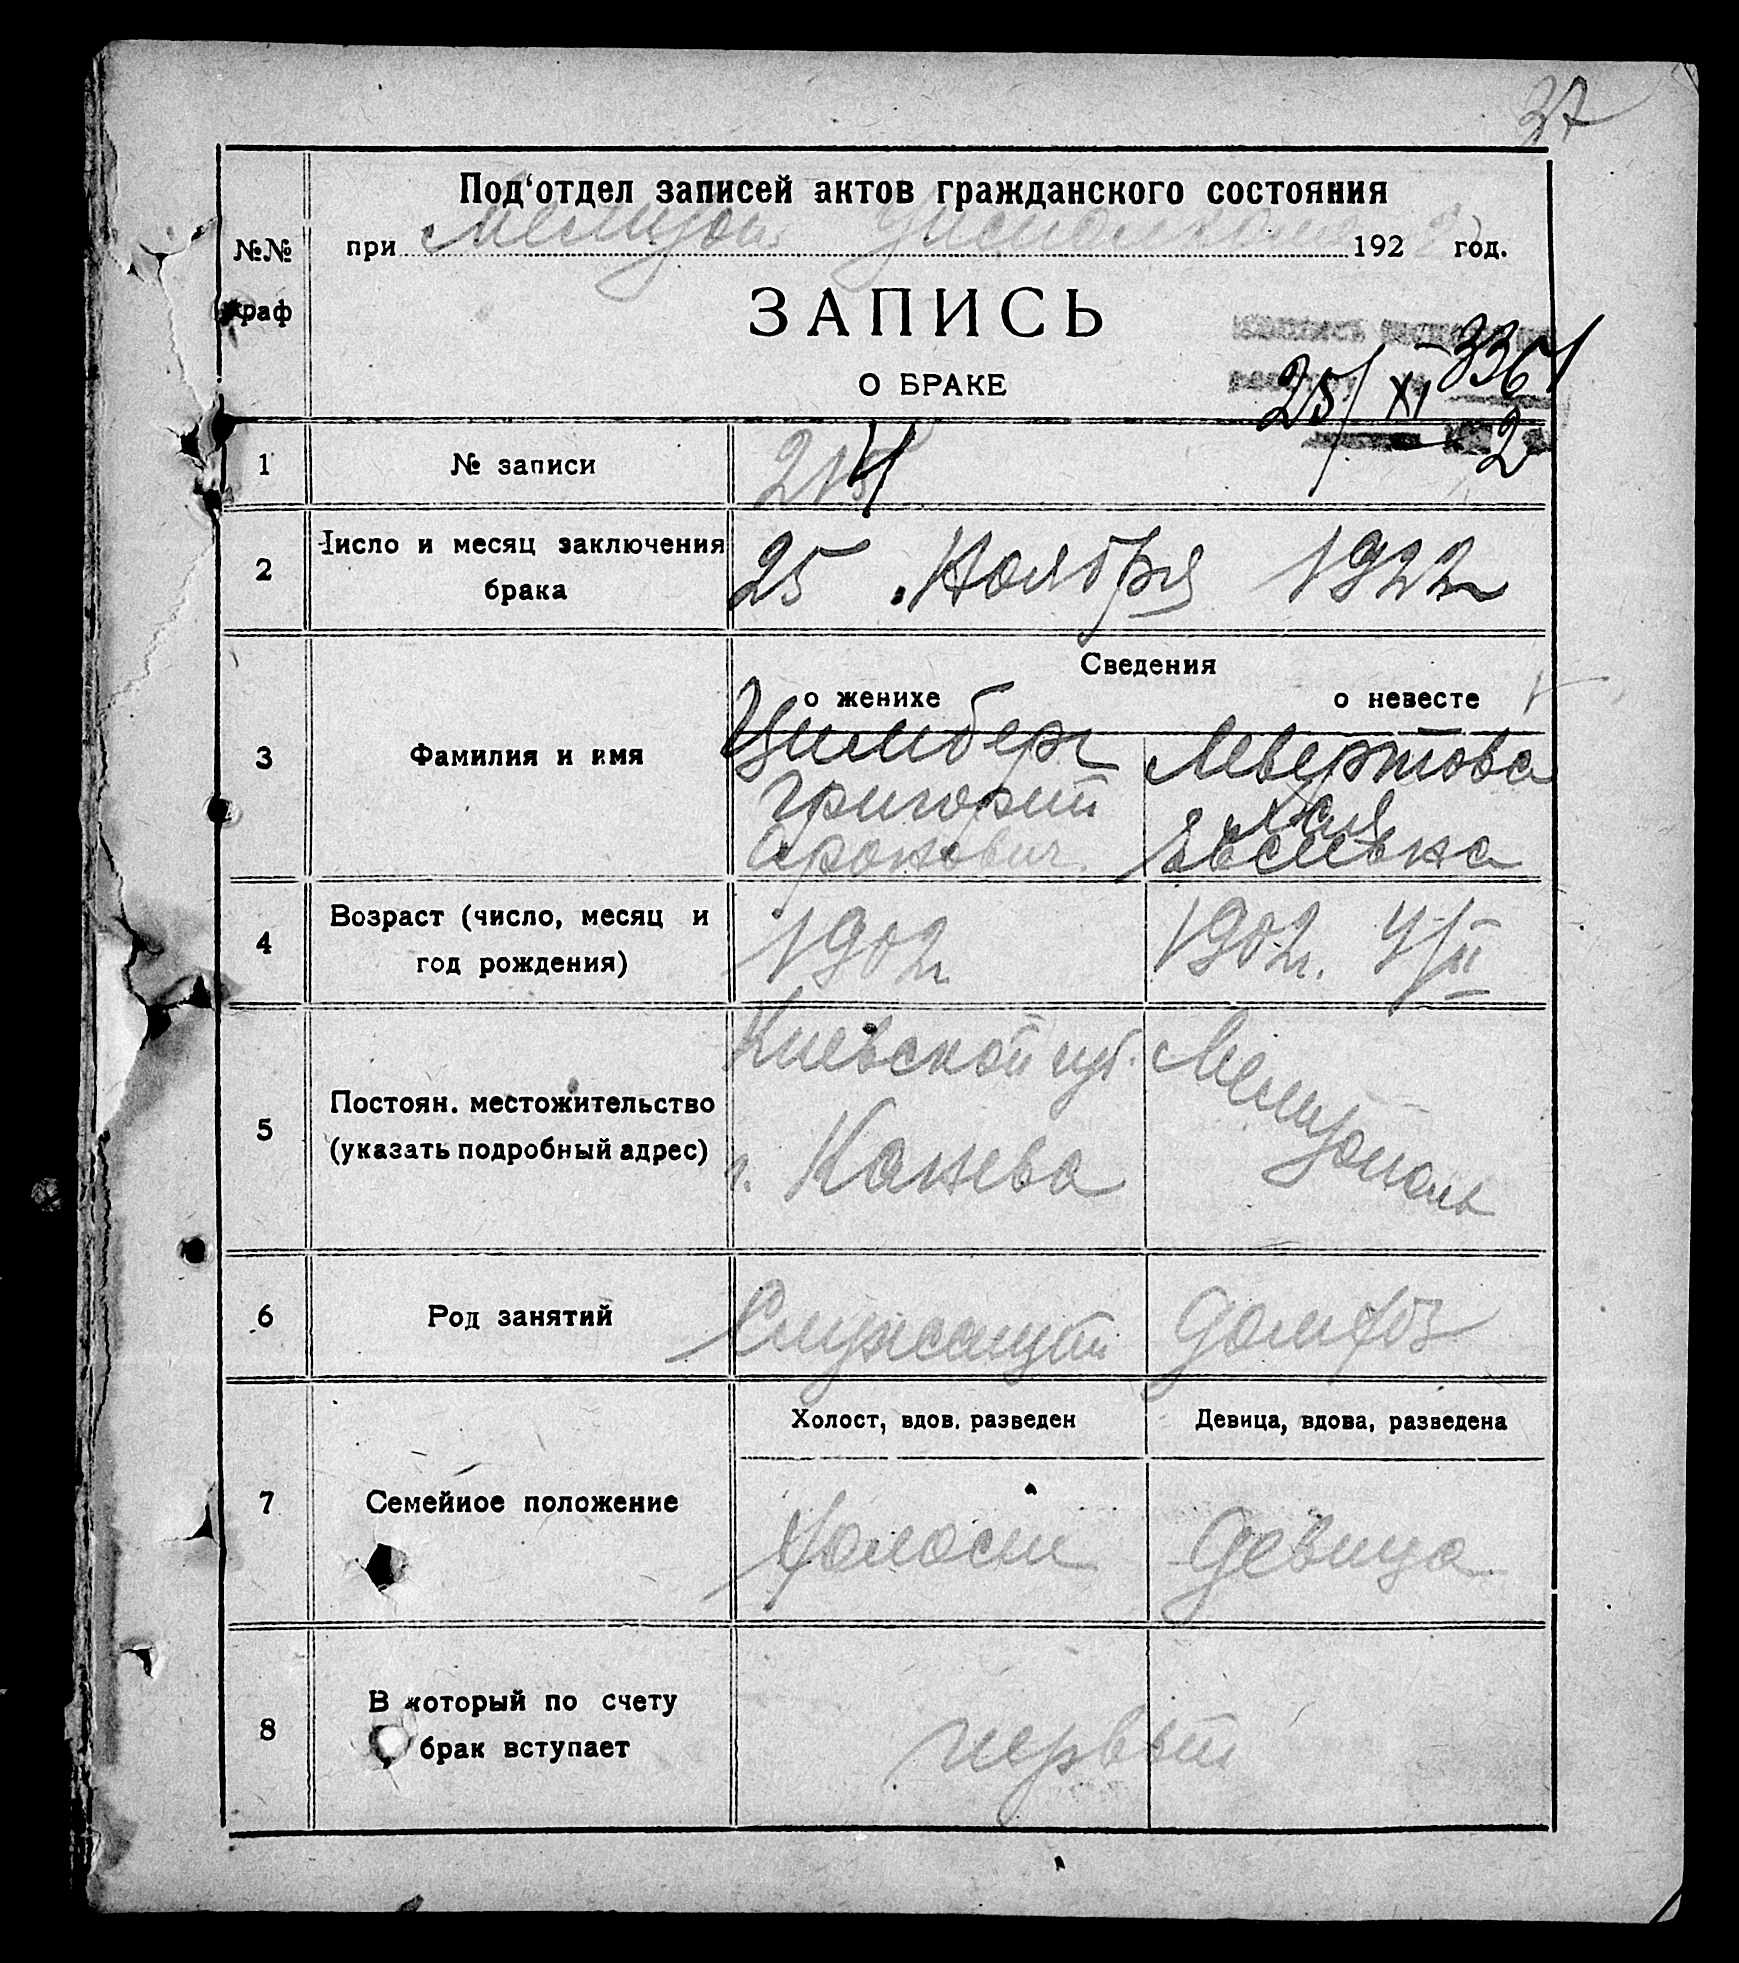 37
Под‘отдел записей актов гражданского состояния
при Мелитоп. Уисполкоме 192 2 год.
№№
граф
ЗАПИСЬ
О БРАКЕ
3361
25/XI 2
1 № записи 214
2 Число и месяц заключения
брака
25 Ноября 1922
Сведения
о женихе о невесте
3 Фамилия и имя
Цимберг Левертова
Григорий
Аронович Евсеевна
4 Возраст (число, месяц и
год рождения)
1902г. 1902г. 4/II
5 Постоян. местожительство
(указать подробный адрес)
Киевской губ. Мелитополь
г. Канева
6 Род занятий Служащий
7 Семейное положение
Холост, вдов. разведен Девица, вдова, разведена
Холост Девица
8 В который по счету
брак вступает
первый